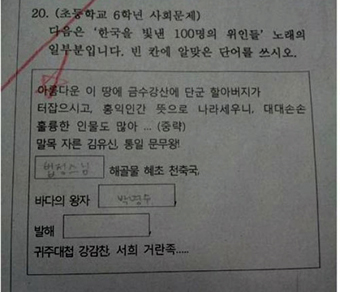 20. (초등학교 6학년 사회문제)
다음은 '한국을 빛낸 100명의 위인들' 노래의
일부분입니다. 빈 칸에 알맞은 단어를 쓰시오.
아름다운 이 땅에 금수강산에 단군 할아버지가
터잡으시고, 홍익인간 뜻으로 나라세우니, 대대손손
훌륭한 인물도 많아 ... (중략)
말목 자른 김유신, 통일 문무왕!
법정스님 해골물 혜초 천축국,
바다의 왕자 박명수
발해
귀주대첩 강감찬, 서희 거란족.....